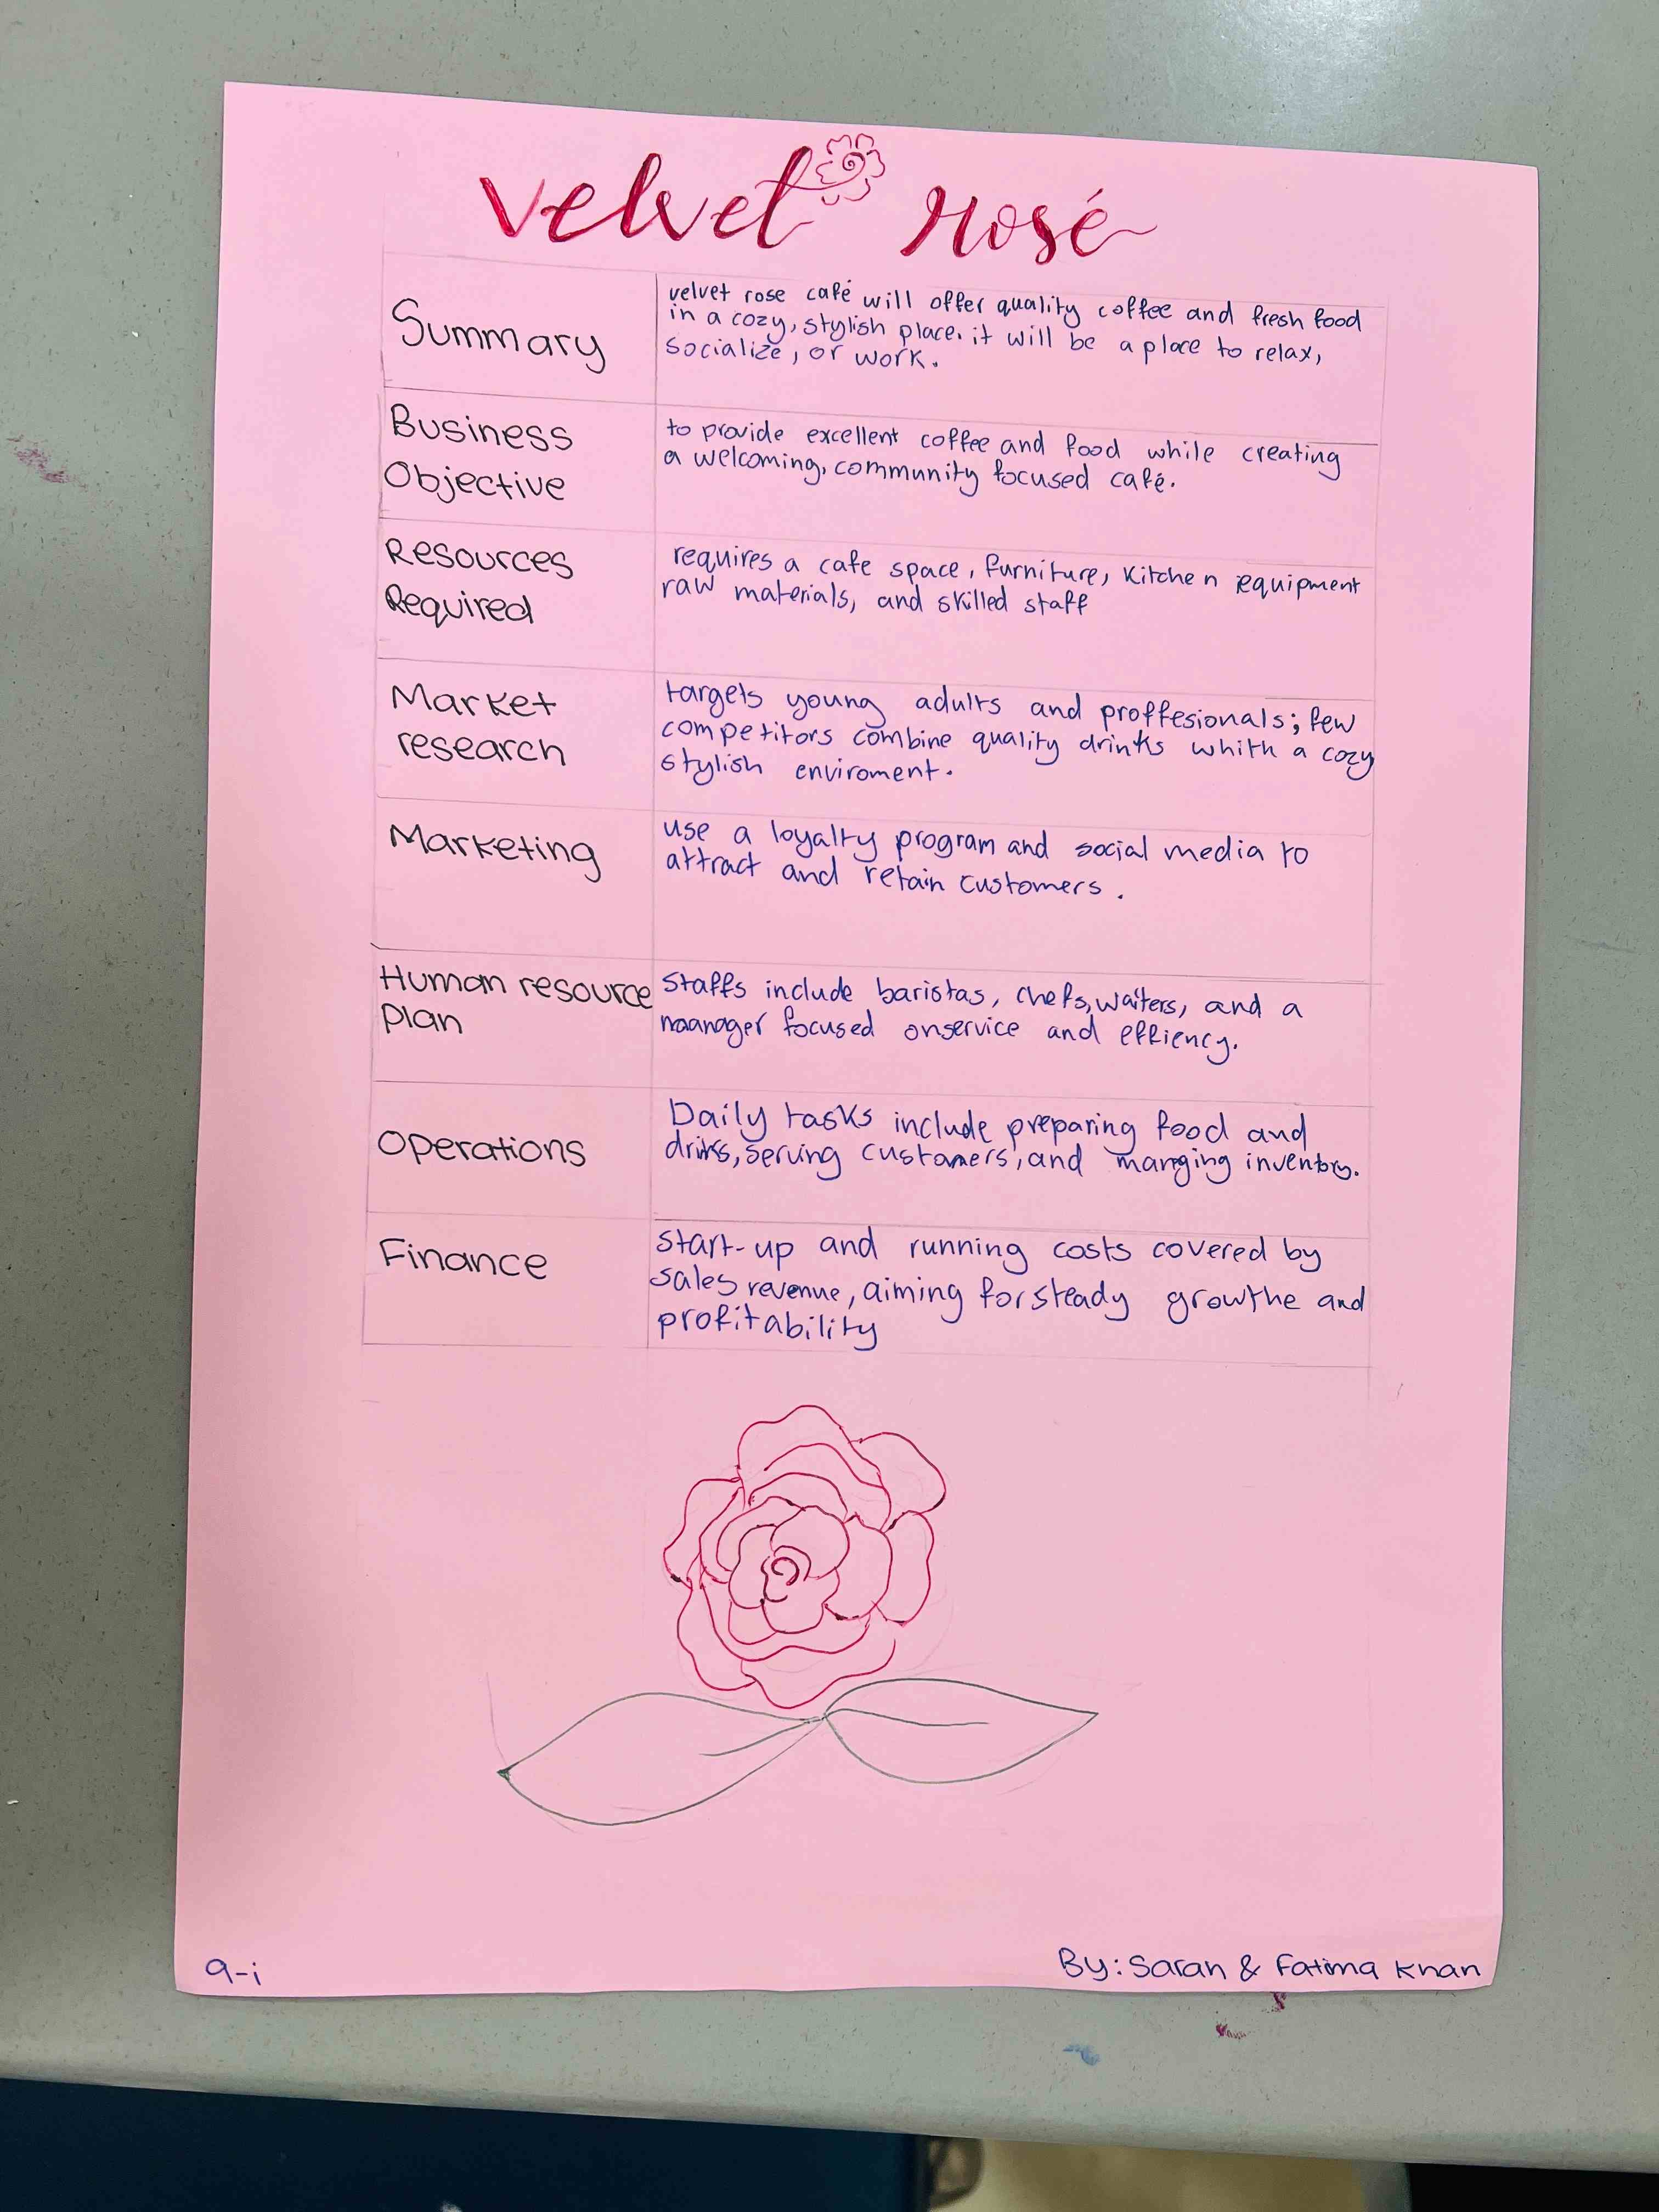 velvet rosé
Summary
velvet rose café will offer quality coffee and fresh food
in a cozy, stylish place. it will be a place to relax,
socialize, or work.
Business
Objective
to provide excellent coffee and food while creating
a welcoming, community focused café.
Resources
Required
requires a cafe space, furniture, kitchen equipment
raw materials, and skilled staff
Market
research
targets young adults and proffesionals; few
competitors combine quality drinks whith a cozy
stylish enviroment.
Marketing
use a loyalty program and social media to
attract and retain customers.
Human resource
plan
Staffs include baristas, chefs, waiters, and a
maanager focused onservice and effiency.
Operations
Daily tasks include preparing food and
drinks, serving customers, and manging inventory.
Finance
start-up and running costs covered by
sales revenue, aiming for steady growthe and
profitability
9-i
By: Sarah & Fatima Khan